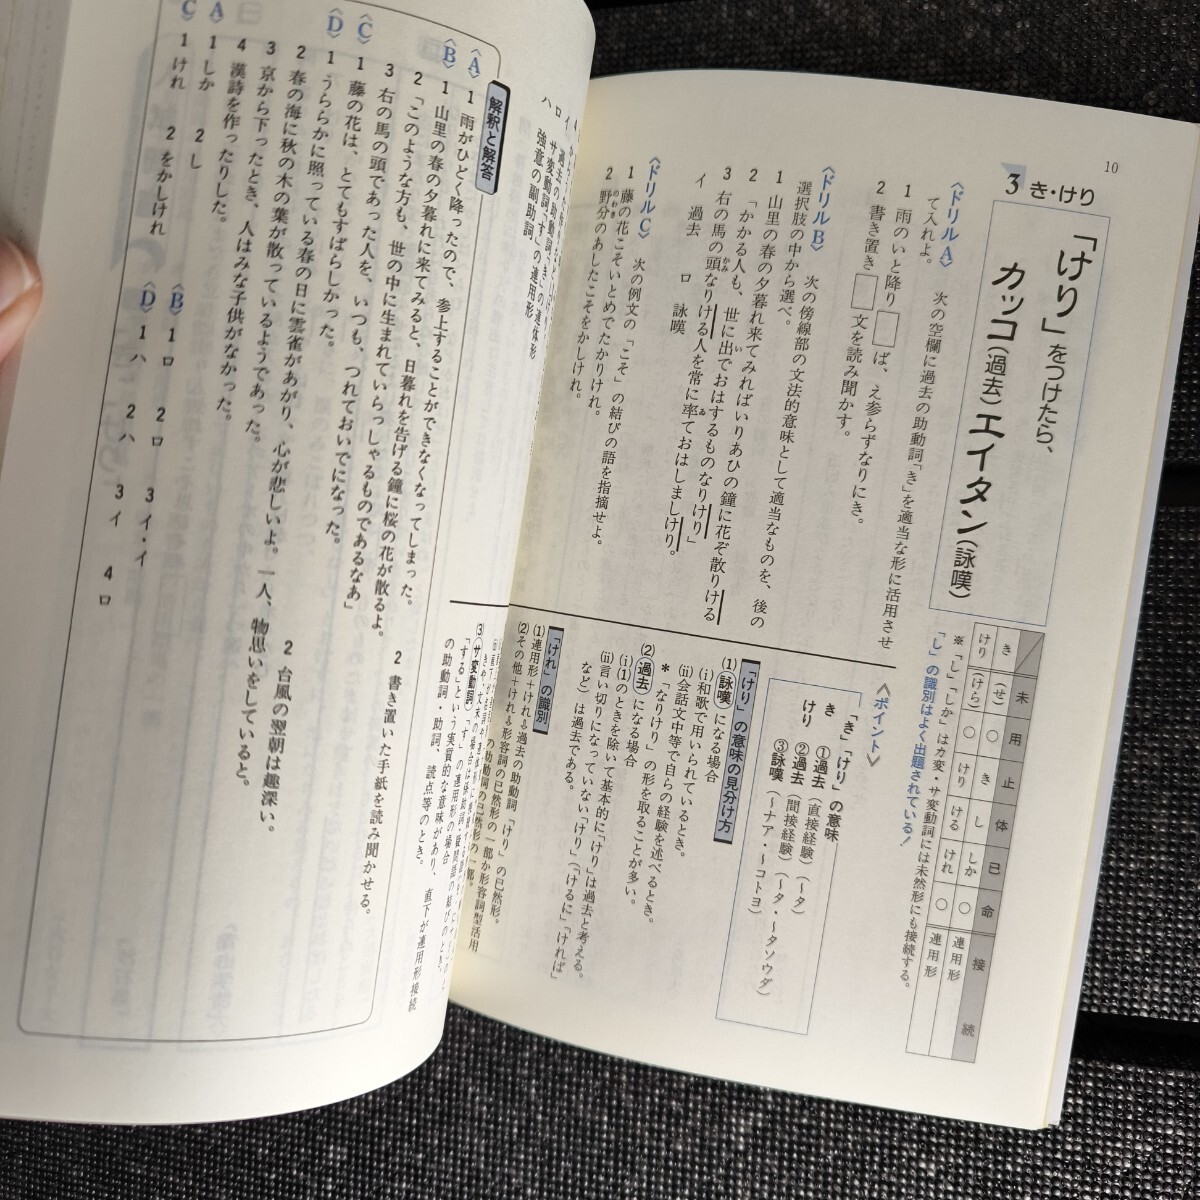 10
3 き・けり
「けり」をつけたら、
カッコ(過去)エイタン(詠嘆)
未 用 止 体 已 命 接続
き (せ) ○ き し しか ○ 連用形
けり (けら) ○ けり ける けれ ○ 連用形
※「し」「しか」はカ変・サ変動詞には未然形にも接続する。
「し」の識別はよく出題されている!
〈ドリルA〉 次の空欄に過去の助動詞「き」を適当な形に活用させ
て入れよ。
1 雨のいと降り□ば、え参らずなりにき。
2 書き置き□文を読み聞かす。
〈ドリルB〉 次の傍線部の文法的意味として適当なものを、後の
選択肢の中から選べ。
1 山里の春の夕暮れ来てみればいりあひの鐘に花ぞ散りける
2 「かかる人も、世に出でおはするものなりけり」
3 右の馬の頭なりける人を常に率ておはしましけり。
イ 過去 ロ 詠嘆
〈ドリルC〉 次の例文の「こそ」の結びの語を指摘せよ。
1 藤の花こそいとめでたかりけれ。
2 野分のあしたこそをかしけれ。
《ポイント》
「き」「けり」の意味
き ①過去(直接経験)(〜タ)
けり ②過去(間接経験)(〜タ・〜タソウダ)
③詠嘆(〜ナア・〜コトヨ)
「けり」の意味の見分け方
(1)詠嘆になる場合
(i)和歌で用いられているとき。
(ii)会話文中等で自らの経験を述べるとき。
*「なりけり」の形を取ることが多い。
(2)過去になる場合
(i)(1)のときを除いて基本的に「けり」は過去と考える。
(ii)言い切りになっていない「けり」(「けるに」「ければ」
など)は過去である。
「けれ」の識別
(1)連用形+けれ⇨過去の助動詞「けり」の已然形。
(2)その他+けれ⇨形容詞の已然形の一部か形容詞型活用
の助動詞の已然形の一部。
ハ 強意の副助詞
ロ サ変動詞「す」の連用形
③サ変動詞「す」の連用形の場合
「する」という実質的な意味があり、直下が連用形接続
の助動詞・助詞、読点等のとき。
解釈と解答
〈A〉 1 雨がひどく降ったので、参上することができなくなってしまった。 2 書き置いた手紙を読み聞かせる。
〈B〉 1 山里の春の夕暮れに来てみると、日暮れを告げる鐘に桜の花が散るよ。
2 「このような方も、世の中に生まれていらっしゃるものであるなあ」
3 右の馬の頭であった人を、いつも、つれておいでになった。
〈C〉 1 藤の花は、とてもすばらしかった。 2 台風の翌朝は趣深い。
〈D〉 1 うららかに照っている春の日に雲雀があがり、心が悲しいよ。一人、物思いをしていると。
2 春の海に秋の木の葉が散っているようであった。
3 京から下ったとき、人はみな子供がなかった。
4 漢詩を作ったりした。
〈A〉 1 しか 2 し 〈B〉 1 ロ 2 ロ 3 イ・イ
〈C〉 1 けれ 2 をかしけれ 〈D〉 1 ハ 2 ハ 3 イ 4 ロ